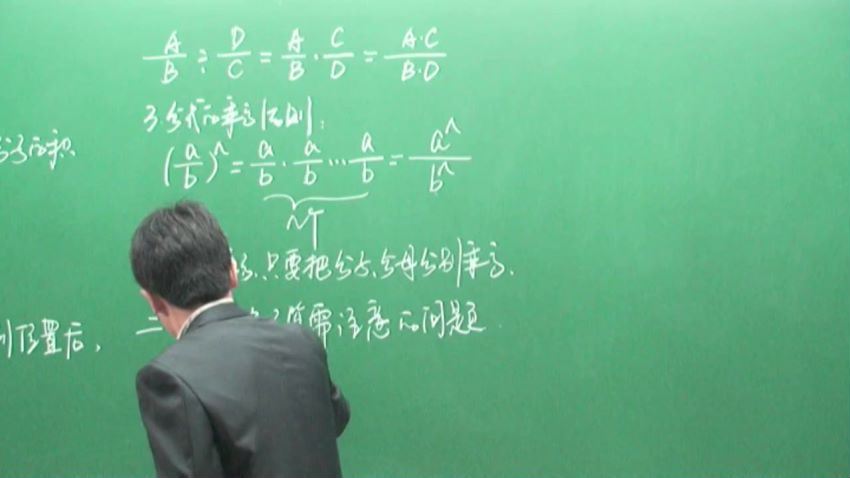 A/B ÷ D/C = A/B · C/D = A·C/B·D
3 分式的乘方法则：
分子的积
(a/b)^n = a/b · a/b ··· a/b = a^n/b^n
n个
方，只要把分子、分母分别乘方．
二 算需注意的问题
位置后，